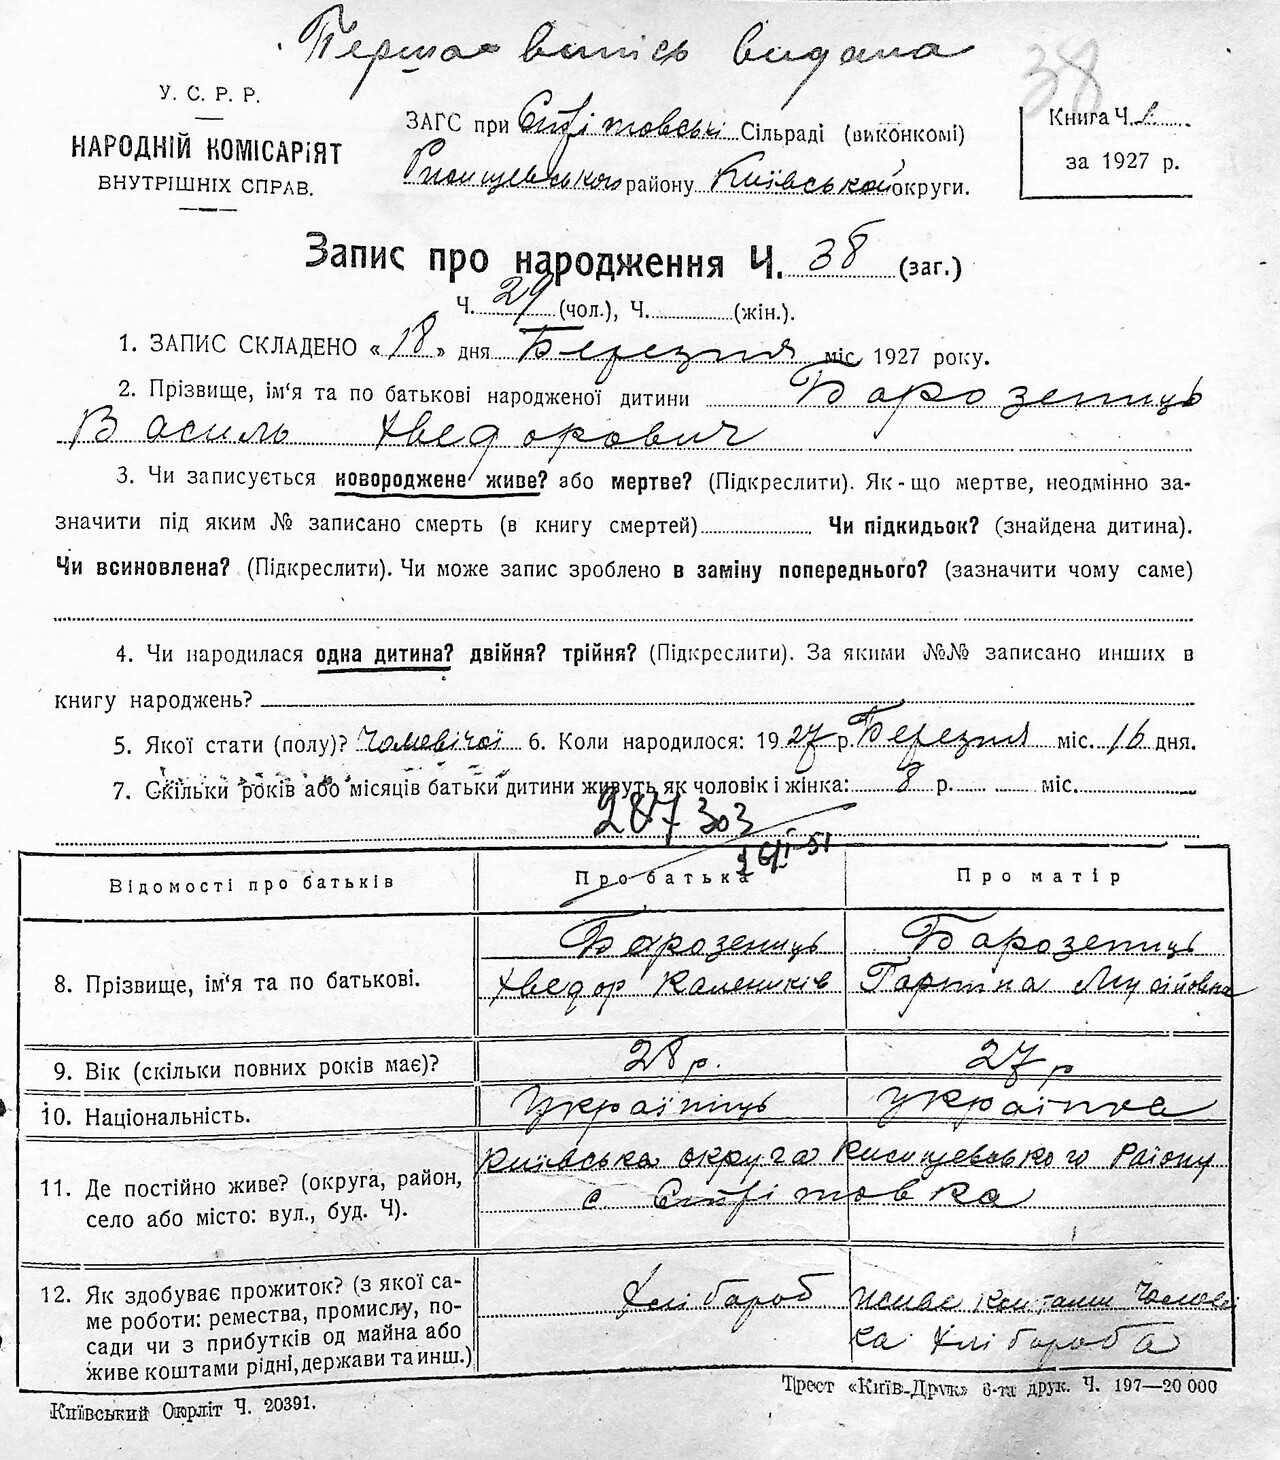 Перша випісь видана
38
У. С. Р. Р.
НАРОДНІЙ КОМІСАРІЯТ
ВНУТРІШНІХ СПРАВ.
ЗАГС при Сільраді (виконкомі)
району Київської округи.
Книга Ч. 1
за 1927 р.
Запис про народження Ч. 38 (заг.)
Ч. 29 (чол.), Ч. (жін.).
1. ЗАПИС СКЛАДЕНО « 18 » дня Березня міс 1927 року.
2. Прізвище, ім‘я та по батькові народженої дитини Барозениць
Василь Хведорович
3. Чи записується новороджене живе? або мертве? (Підкреслити). Як-що мертве, неодмінно за-
значити під яким № записано смерть (в книгу смертей) Чи підкидьок? (знайдена дитина).
Чи всиновлена? (Підкреслити). Чи може запис зроблено в заміну попереднього? (зазначити чому саме)
4. Чи народилася одна дитина? двійня? трійня? (Підкреслити). За якими №№ записано инших в
книгу народжень?
5. Якої стати (полу)? Чоловічої 6. Коли народилося: 1927 р. Березня міс. 16 дня.
7. Скільки років або місяців батьки дитини живуть як чоловік і жінка: 8 р. міс.
287303
Відомості про батьків
Про батька
Про матір
8. Прізвище, ім‘я та по батькові.
Барозениць
Хведор Калеників
Барозениць
Горпина Мусійовна
9. Вік (скільки повних років має)?
28 р.
27 р
10. Національність.
Українець
українка
11. Де постійно живе? (округа, район,
село або місто: вул., буд. Ч).
Київська округа Району
с.
12. Як здобуває прожиток? (з якої са-
ме роботи: ремества, промислу, по-
сади чи з прибутків од майна або
живе коштами рідні, держави та инш.)
Хлібороб
живе коштами Чолові
ка хлібороба
Київський Окрліт Ч. 20391.
Трест «Київ-Друк» 6-та друк. Ч. 197—20 000